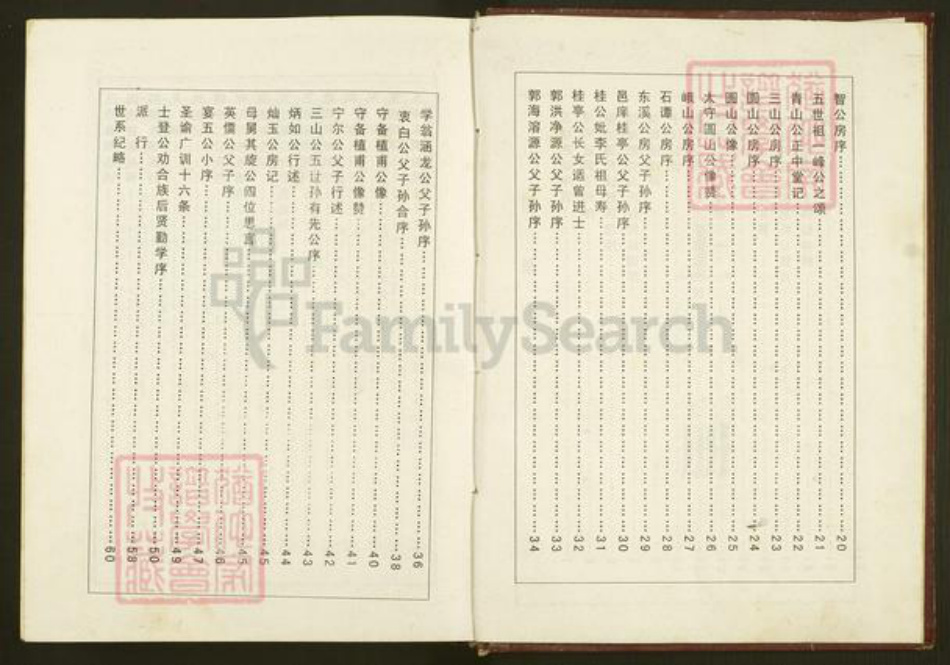 智公房序……20
五世祖一峰公之颂……21
青山公正中堂记……22
三山公房序……23
圆山公房序……24
圆山公像……25
太守圆山公像赞……26
峨山公房序……27
石谭公房序……28
东溪公房父子孙序……29
邑庠桂亭公父子孙序……30
桂公妣李氏祖母寿……31
桂亭公长女适曾进士……32
郭洪净源公父子孙序……33
郭海溶源公父子孙序……34
学翁涵龙公父子孙序……36
衷白公父子孙合序……38
守备植甫公像……40
守备植甫公像赞……41
宁尔公父子行述……42
三山公五世孙有先公序……43
炳如公行述……44
灿玉公房记……45
母舅其旋公四位思言……45
英儒公父子序……46
宴五公小序……47
圣谕广训十六条……49
士登公劝合族后贤勤学序……50
派 行……58
世系纪略……60
FamilySearch